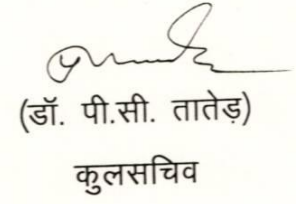 (डॉ. पी.सी. तातेड़)
कुलसचिव